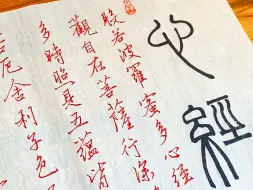 心經
般若波羅蜜多心經
觀自在菩薩行深
多時照見五蘊皆
苦厄舍利子色